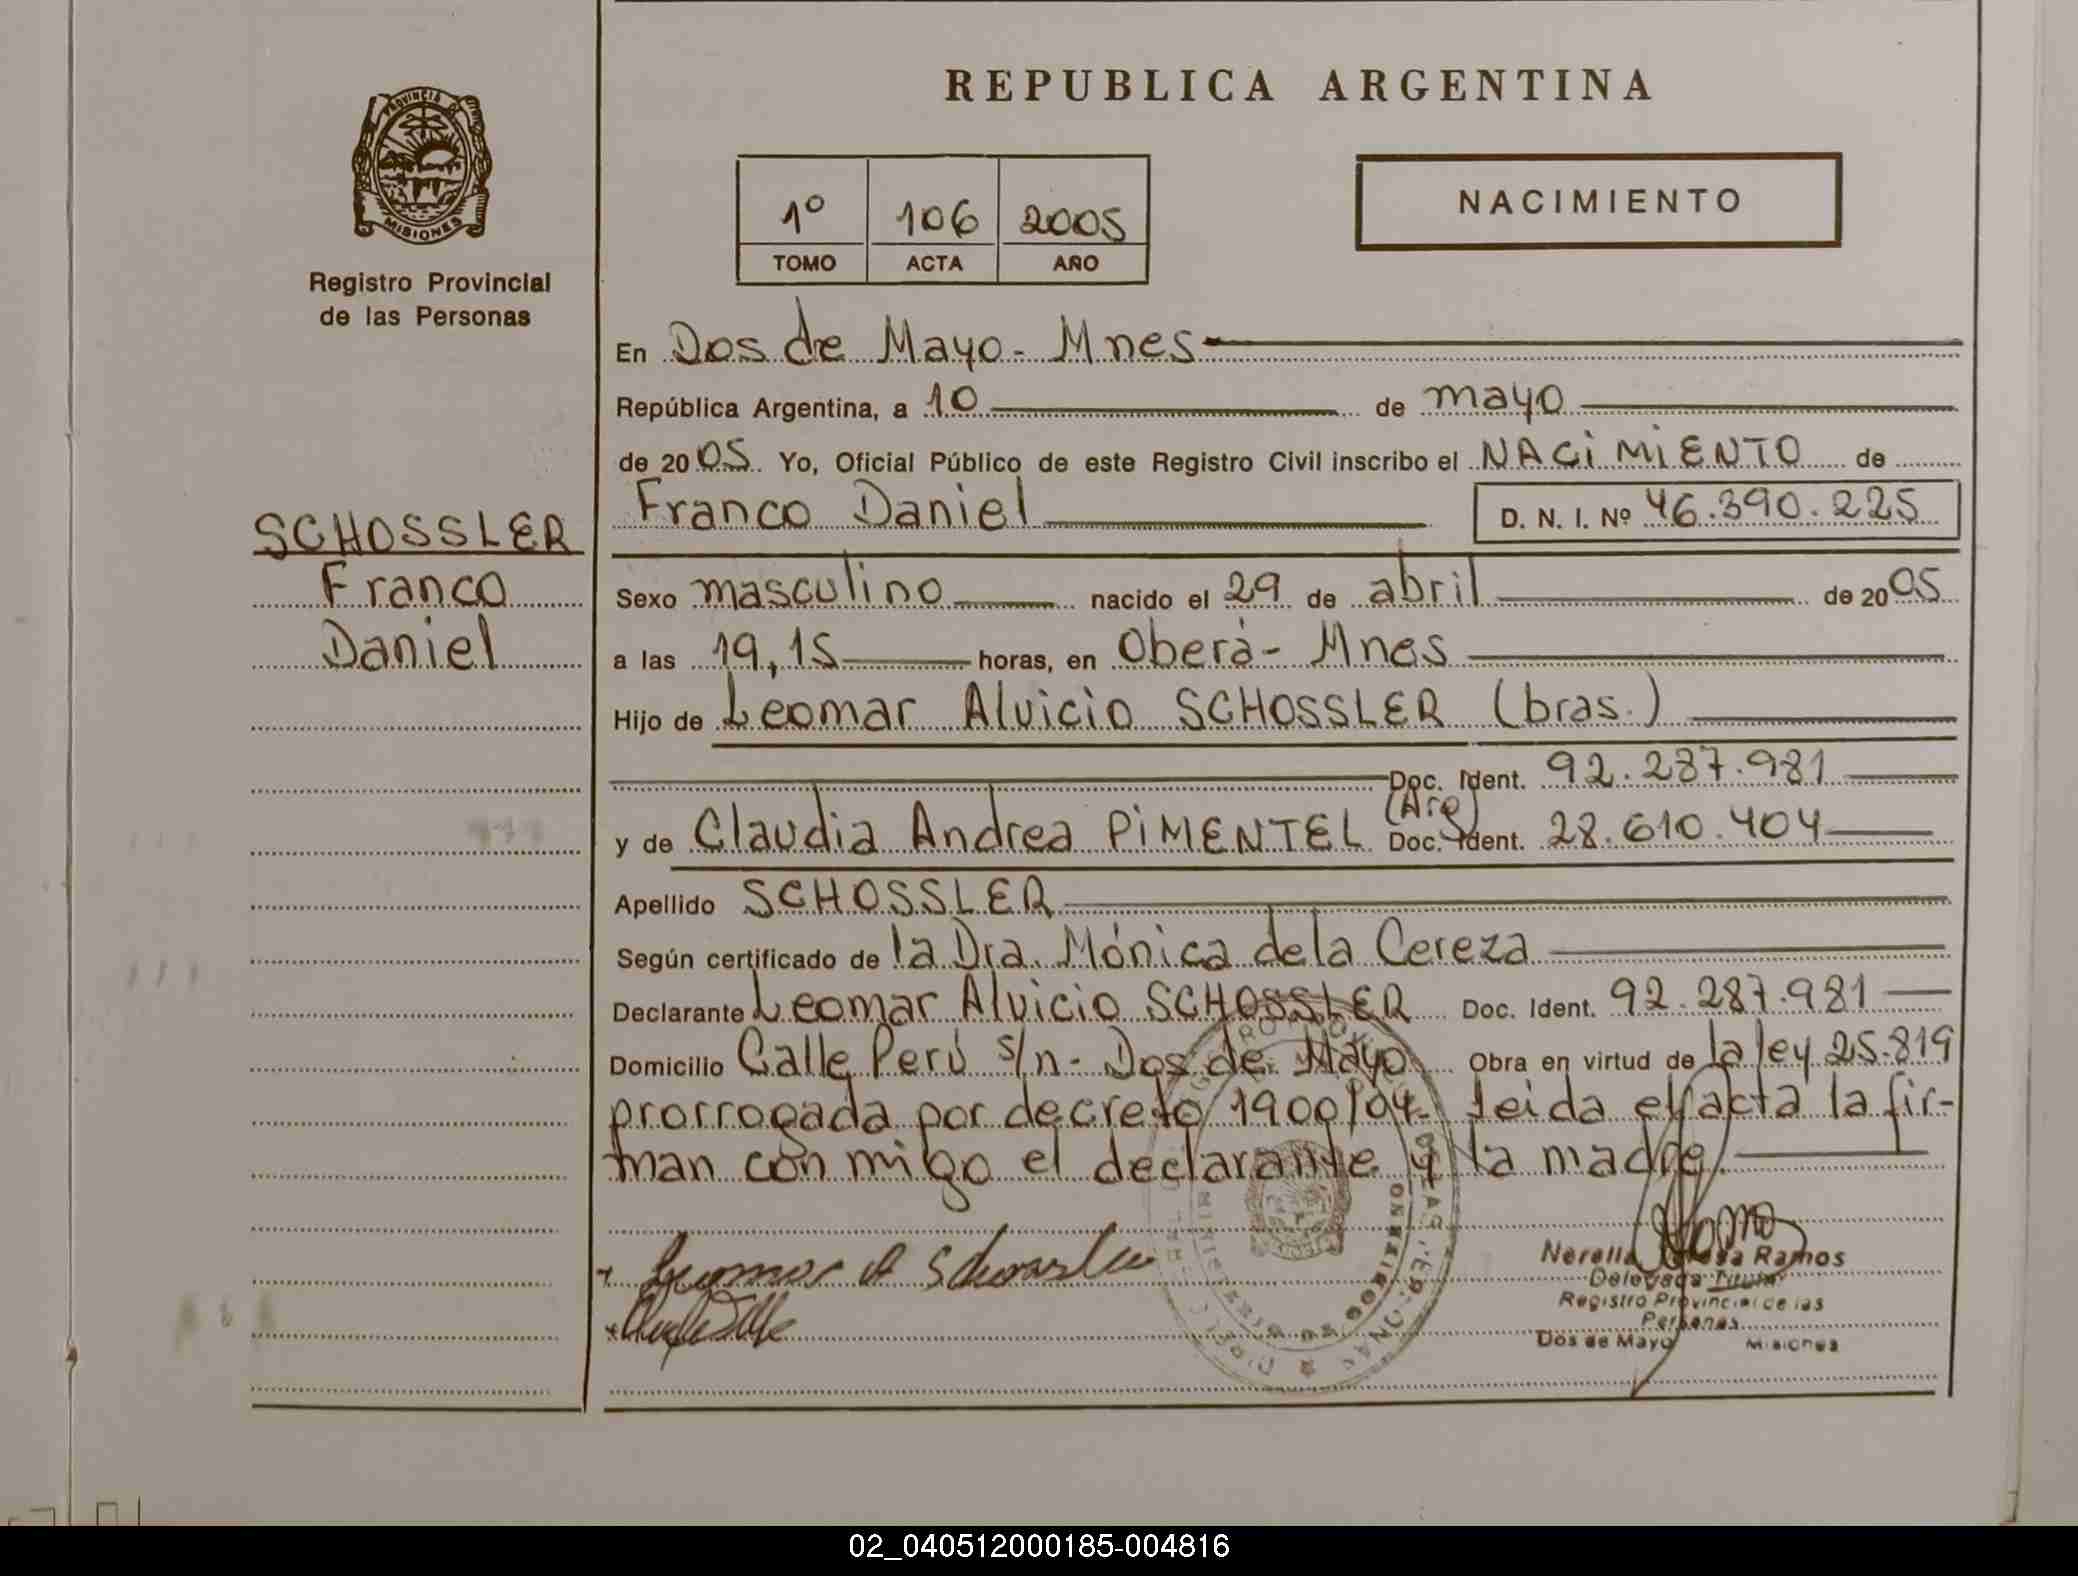 REPUBLICA ARGENTINA
PROVINCIA DE
MISIONES
Registro Provincial
de las Personas
1º 106 2005
TOMO ACTA AÑO
NACIMIENTO
En Dos de Mayo - Mnes
República Argentina, a 10 de mayo
de 2005 Yo, Oficial Público de este Registro Civil inscribo el NACIMIENTO de
Franco Daniel D. N. I. Nº 46.390.225
SCHOSSLER
Franco
Daniel
Sexo masculino nacido el 29 de abril de 2005
a las 19,15 horas, en Oberá - Mnes
Hijo de Leomar Alvicio SCHOSSLER (bras.)
Doc. Ident. 92.287.981
(Arg)
y de Claudia Andrea PIMENTEL Doc. Ident. 28.610.404
Apellido SCHOSSLER
Según certificado de la Dra. Mónica dela Cereza
Declarante Leomar Alvicio SCHOSSLER Doc. Ident. 92.287.981
Domicilio Calle Perú s/n - Dos de Mayo Obra en virtud de la ley 25.819
prorrogada por decreto 1900/04. Leida el acta la fir-
man con migo el declarante y la madre.
Leomar A Schossler
Nerella Ramos
Delegada Titular
Registro Provincial de las
Personas
Dos de Mayo Misiones
02_040512000185-004816